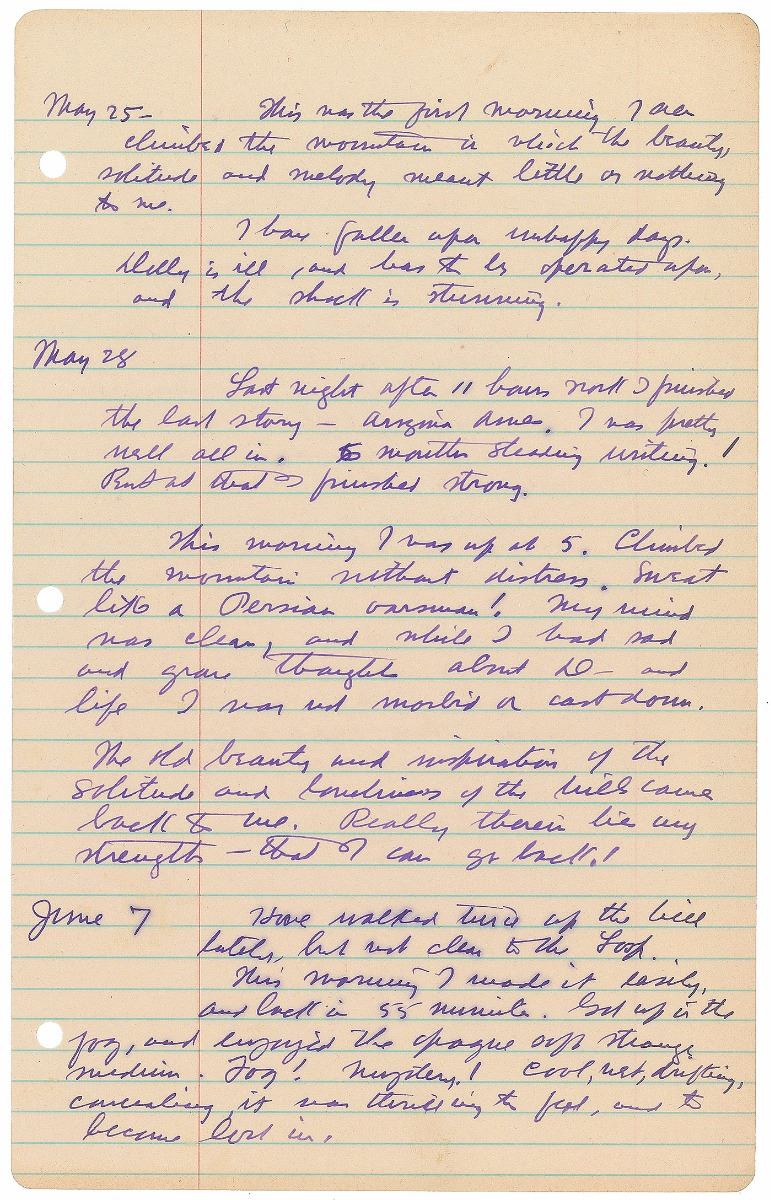 May 25- This was the first morning I ever
climbed the mountain in which the beauty,
solitude and melody meant little or nothing
to me.
I have fallen upon unhappy days.
Dolly is ill, and has to be operated upon,
and the shock is stunning.
May 28
Last night after 11 hours work I finished
the last story — Arizona Ames. I was pretty
well all in. 5 months steading writing!
But at that I finished strong.
This morning I was up at 5. Climbed
the mountain without distress. Sweat
like a Persian oarsman! My mind
was clear, and while I had sad
and grave thoughts about D— and
life I was not morbid or cast down.
The old beauty and inspiration of the
solitude and loneliness of the hills came
back to me. Really therein lies my
strength — that I can go back!
June 7 Have walked twice up the hill
lately, but not clear to the Loop.
This morning I made it easily,
and back in 55 minutes. Got up in the
fog, and enjoyed the opaque soft strange
medium. Fog! Mystery! Cool, wet, drifting,
concealing, it was thrilling to feel, and to
become lost in.